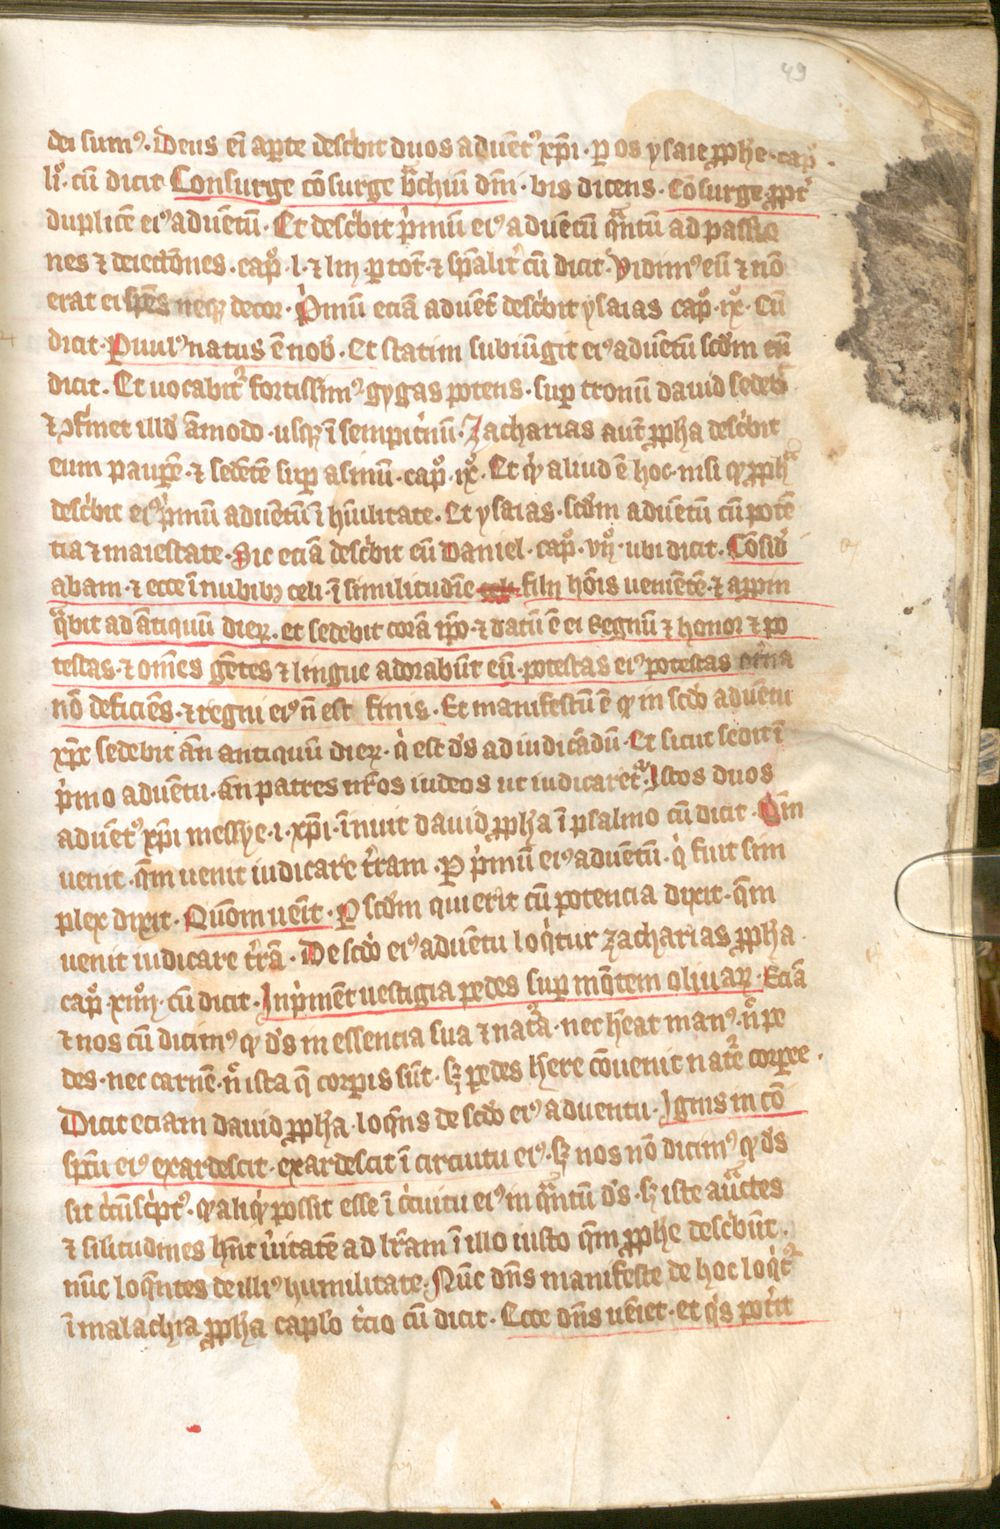 49
dei sumꝰ. Deus eī aꝑte descͥbit duos aduēt᷒ xp̄i · ꝑ os ysaie ꝓphe · capͦ ·
liͦ. cū dicit Consurge cōsurge b̄chiū dn̄i · bis dicens · cōsurge ꝓpt᷒
duplicē eiꝰ aduētū · Et descͥbit pͥmū eiꝰ aduētū qᷓntū ad passio
nes ⁊ deiectōnes · capͦ · l · ⁊ liij ꝑ tot̄ · ⁊ sp̄alit᷒ cū dicit · Vidimꝰ eū ⁊ nō
erat ei sp̄es neqꝫ decor · Pͥmū eciā aduēt̄ descͥbit ysaias capͦ · ix̊ · Cū
dicit · Puulꝰ natus ē nob̄ · Et statim subiūgit eiꝰ aduētū scd̄m cū
dicit · Et uocabit᷒ fortissimꝰ gygas potens · suꝑ tronū dauid sedeb̄
⁊ ꝯfͥmet illd̓ āmodo · usqꝫ ī sempitͥnū · Zacharias aut̄ ꝓpha descͥbit
eum pauꝑē · ⁊ sedētē suꝑ asinū · capͦ · ix̊ · Et qͥd aliud ē hoc · nisi qꝫ ꝓphᷓ
descͥbit eiꝰ pͥmū aduētū ī hūilitate · Et ysaias · scd̄m aduētū cū potē
tia ⁊ maiestate · Sic eciā descͥbit eū Daniel · capͦ · vij̊ · ubi dicit · Cōsid̓
abam · ⁊ ecce ī nubibꝫ celi · ī similitudīe filij hōis ueniētē · ⁊ appin
qᷓbit ad ātiquū dieꝝ · et sedebit corā ip̄o · ⁊ datū ē ei Regnū ⁊ honor ⁊ po
testas · ⁊ om̄es gētes ⁊ lingue adorabūt eū · potestas eiꝰ potestas et̓na
nō deficiēs · ⁊ regni eiꝰ n̄ est finis · Et manifestū ē qꝫ in scd̓o aduētu
xp̄c sedebit an̄ antiquū dieꝝ · qͥ est d̓s ad iudicādū · Et sicut sedit ī
pͥmo aduētu · an̄ patres nr̄os iudeos ut iudicaret᷒ · Istos duos
aduēt᷒ xp̄i messye · i · xp̄i · īnuit dauid ꝓpha ī psalmo cū dicit · Qm̄
uenit · qm̄ uenit iudicare tͥram · Ꝑ pͥmū eiꝰ aduētū · qͥ fuit sim
plex dixit · Quōm uēit · Ꝑ scd̄m qui erit cū potencia dixit · qm̄
uenit iudicare tͥrā · De scd̓o eiꝰ aduētu loqͥtur zacharias ꝓpha ·
capͦ · xiiij · cū dicit · Inpͥmēt uestigia pedes suꝑ mōtem oliuaꝝ · Eciā
⁊ nos cū dicimꝰ qꝫ d̓s in essencia sua ⁊ natᷓa · nec h̄eat manꝰ · n̊ pe
des · nec carnē · n̊ ista q̄ corpis sūt · sꝫ pedes h̄ere cōuenit nat᷒e corpee ·
Dicit eciam dauid ꝓpha · loqͥns de scd̓o eiꝰ aduentu · Ignis in cō
spc̄u eiꝰ exardescit · exardescit ī circuitu eiꝰ · sꝫ nos nō dicimꝰ qꝫ d̓s
sit cͥcūscͥptꝰ · qꝫ aliqͥd possit esse ī cͥcuitu eiꝰ in qᷓntū d̓s · sꝫ iste auctes
⁊ silitudines hn̄t uͥitatē ad lr̄am ī illo iusto qm̄ ꝓphe descͥbūt ·
nūc loqͥntes de illiꝰ humilitate · Nūc dn̄s manifeste de hoc loqͥt᷒
ī malachia ꝓpha caplo tͥcio cū dicit · Ecce dn̄s uēiet · et qͥs potͥit